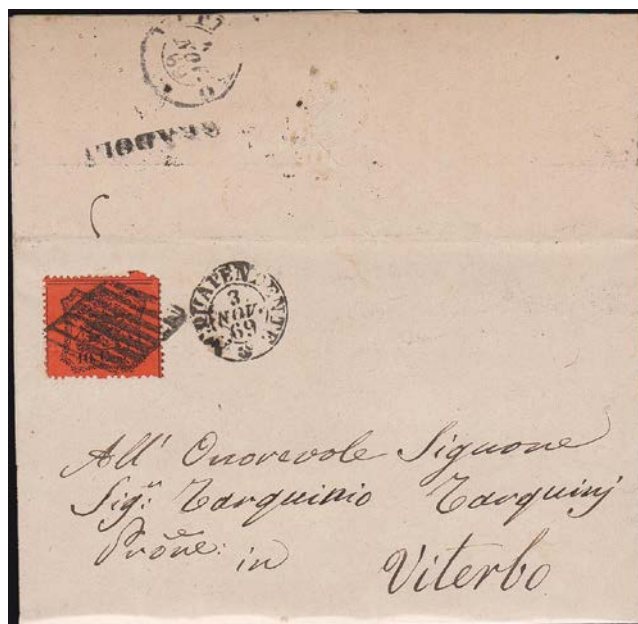 NOV
69
GRADOLI
ACQUAPENDENTE
3
NOV.
69
All' Onorevole Signore
Sig.r Tarquinio Tarquinj
in Viterbo